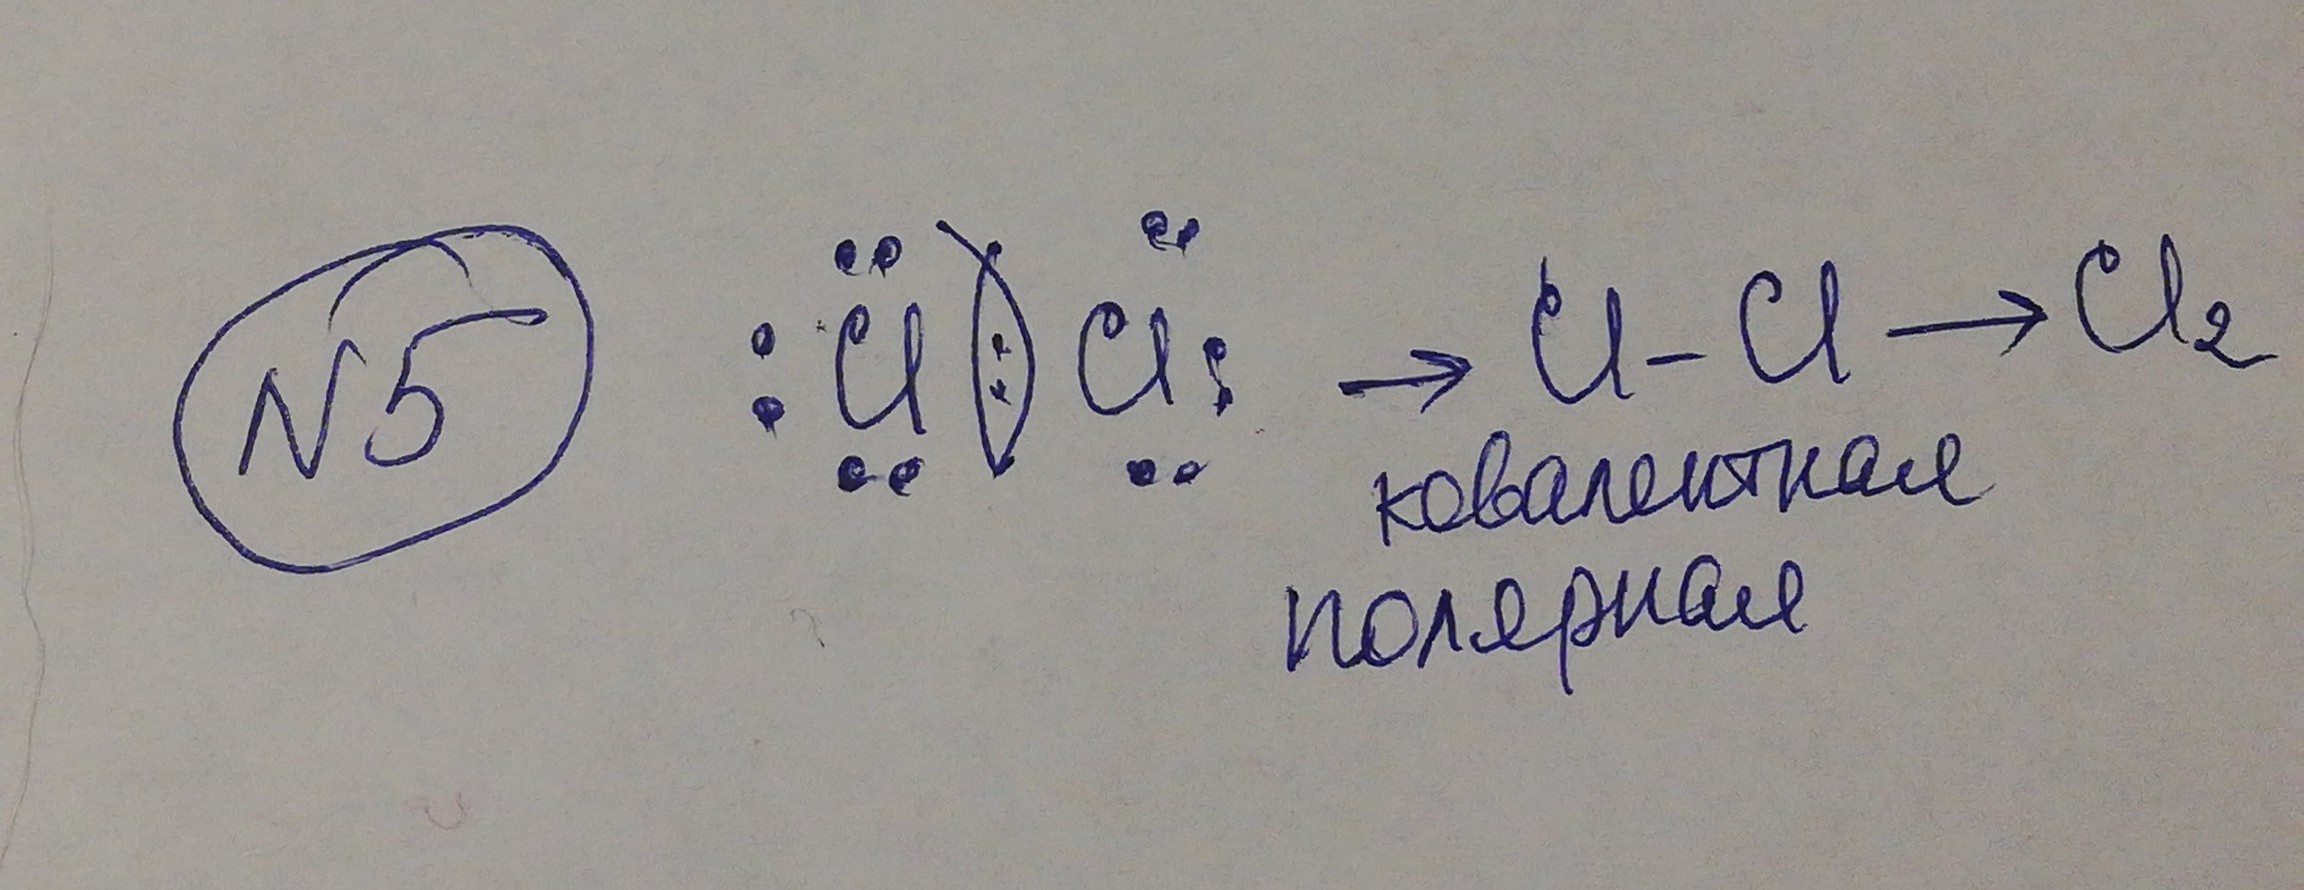 N5 :Cl:Cl: → Cl - Cl → Cl₂
ковалентная
полярная